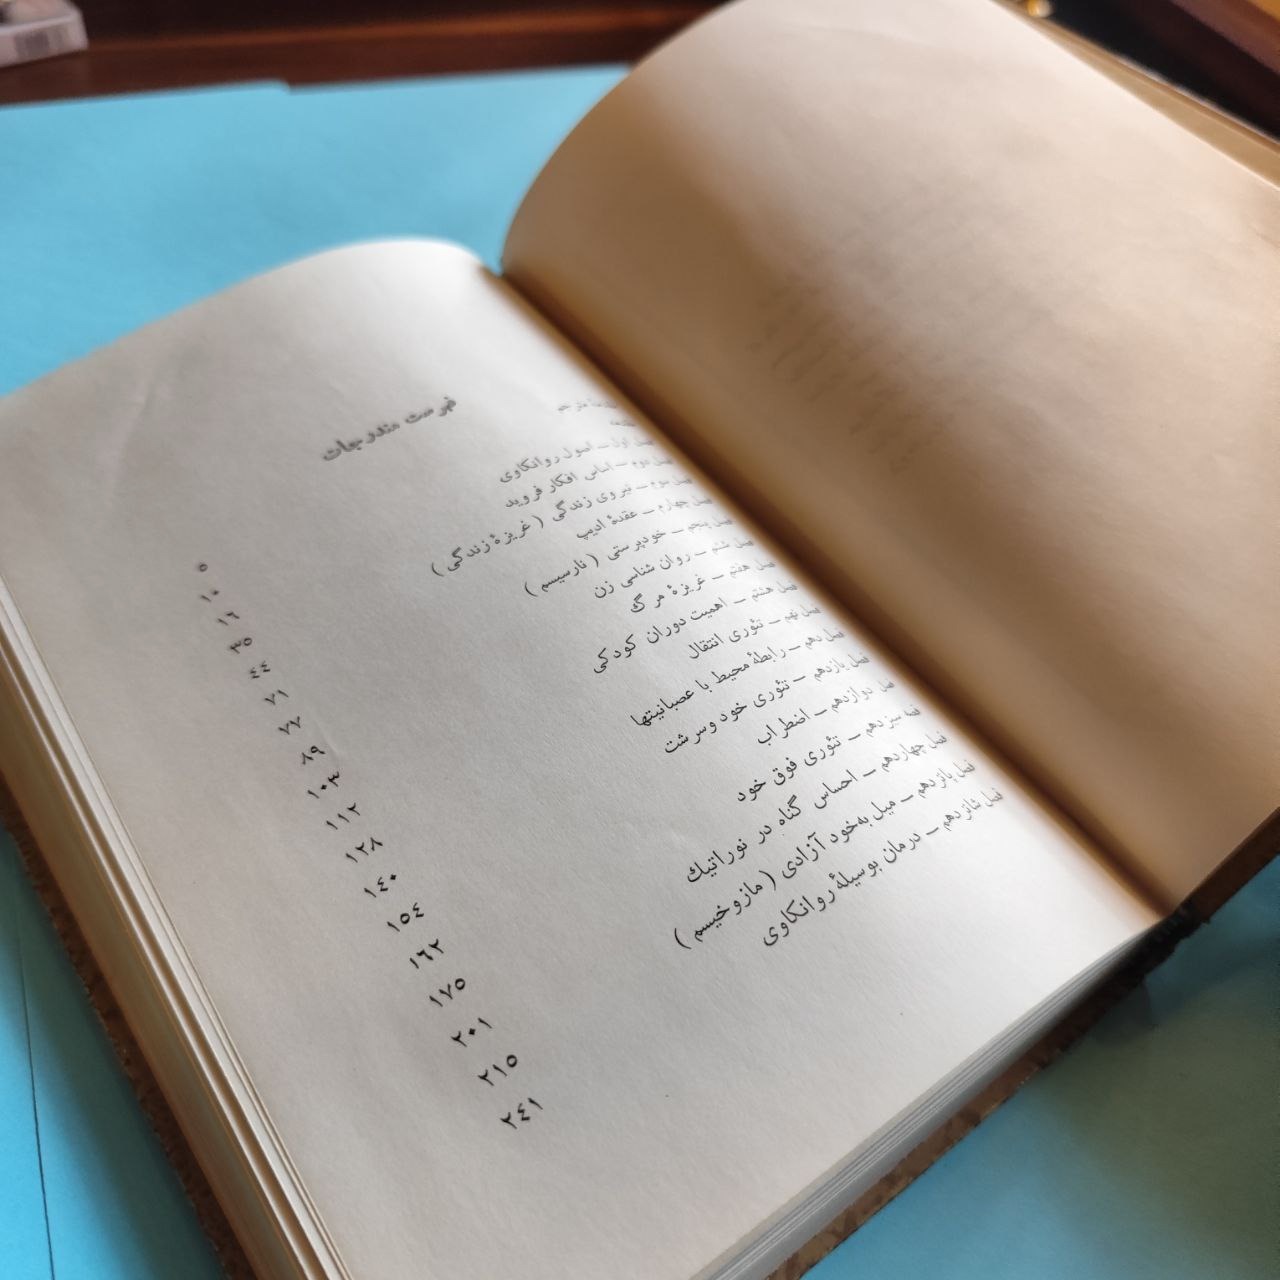 فهرست مندرجات
مقدمهٔ مترجم ۵
مقدمه ۱۰
فصل اول – اصول روانکاوی ۱۶
فصل دوم – اساس افکار فروید ۳۵
فصل سوم – نیروی زندگی ( غریزهٔ زندگی ) ۴۴
فصل چهارم – عقدهٔ ادیپ ۷۱
فصل پنجم – خودپرستی ( نارسیسم ) ۷۷
فصل ششم – روان شناسی زن ۸۹
فصل هفتم – غریزهٔ مرگ ۱۰۳
فصل هشتم – اهمیت دوران کودکی ۱۱۲
فصل نهم – تئوری انتقال ۱۲۸
فصل دهم – رابطهٔ محیط با عصبانیتها ۱۴۰
فصل یازدهم – تئوری خود و سرشت ۱۵۴
فصل دوازدهم – اضطراب ۱۶۲
فصل سیزدهم – تئوری فوق خود ۱۷۵
فصل چهاردهم – احساس گناه در نوراتیك ۲۰۱
فصل پانزدهم – میل به‌خود آزادی ( مازوخیسم ) ۲۱۵
فصل شانزدهم – درمان بوسیلهٔ روانکاوی ۲۴۱